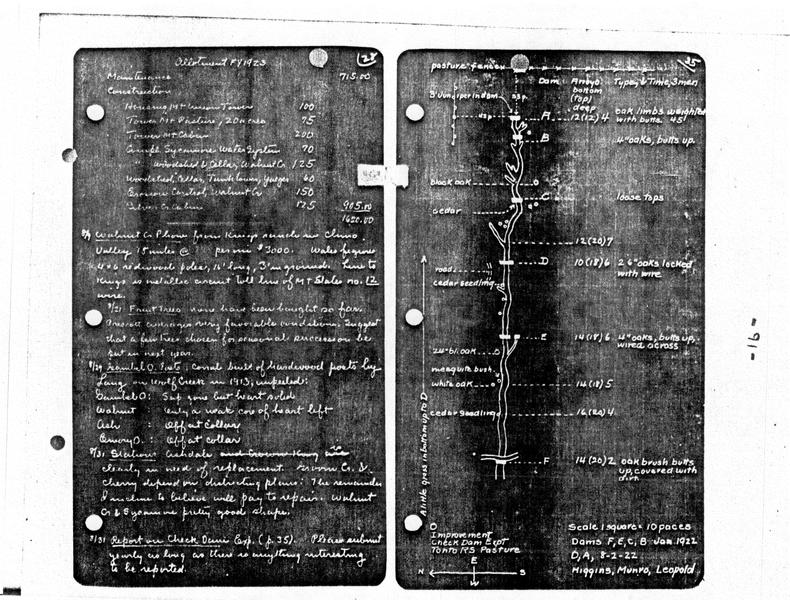 28
Allotment FY 1923
Maintenance 715.00
Construction
Horsims Mt Union Tower 100
Tower Mt Pasture, 20 acres 75
Tower Mt Cabin 200
Campb. Sycamore Water System 70
" Woodshed & Cellar, Walnut Cr 125
Woodshed, Cellar, Tank tower, 60
Erosion Control, Walnut Cr 150
Silver Cr Cabin 125 905.00
1620.00
Walnut Cr Phone from Kings ranch in Chino
Valley 15 miles @ per mi $3000. Wales figures
4x6 redwood poles, 16' long, 3' in ground. Line to
Kings is metallic circuit toll line of Mt States no. 12
wire.
8/21 Fruit Trees now have been bought so far.
Prescott averages very favorable conditions. Suggest
that a few trees chosen for seasonal succession be
put in next year.
8/29 Corral built of hardwood posts by
Lang on Wolf Creek in 1913, unpeeled:
Gambel O: Sap gone but heart solid
Walnut : Only a weak core of heart left
Ash : Off at collar
Emory O. : Off at collar
8/31 Stations Ashdale and Crown King are
clearly in need of replacement. Groom Cr. &
Cherry depend on districting plans. The remainder
I incline to believe will pay to repair. Walnut
Cr & Sycamore pretty good shape.
8/31 Report on Check Dams Exp. (p. 35). Please submit
yearly as long as there is anything interesting
to be reported.
35
pasture fence
Dam Arroyo bottom (top) deep Type, & Time, 3 men
3' Juniper in dam
A 12(12) 4 oak limbs weighted with butts 45'
B 4" oaks, butts up.
black oak
C loose tops
cedar
12(20) 7
D 10(18) 6 2 6" oaks locked with wire
road
cedar seedling
E 14(18) 6 4" oaks, butts up, wired across
24" bl. oak
mesquite bush
white oak 14(18) 5
cedar seedling 16(20) 4
A little grass in bottom up to D
F 14(20) 2 oak brush butts up, covered with dirt.
O
Improvement
Check Dam Expt
Tonto RS Pasture
E
N S
W
Scale 1 square = 10 paces
Dams F, E, C, B Jan. 1922
D, A, 8-2-22
Higgins, Munro, Leopold
-16-